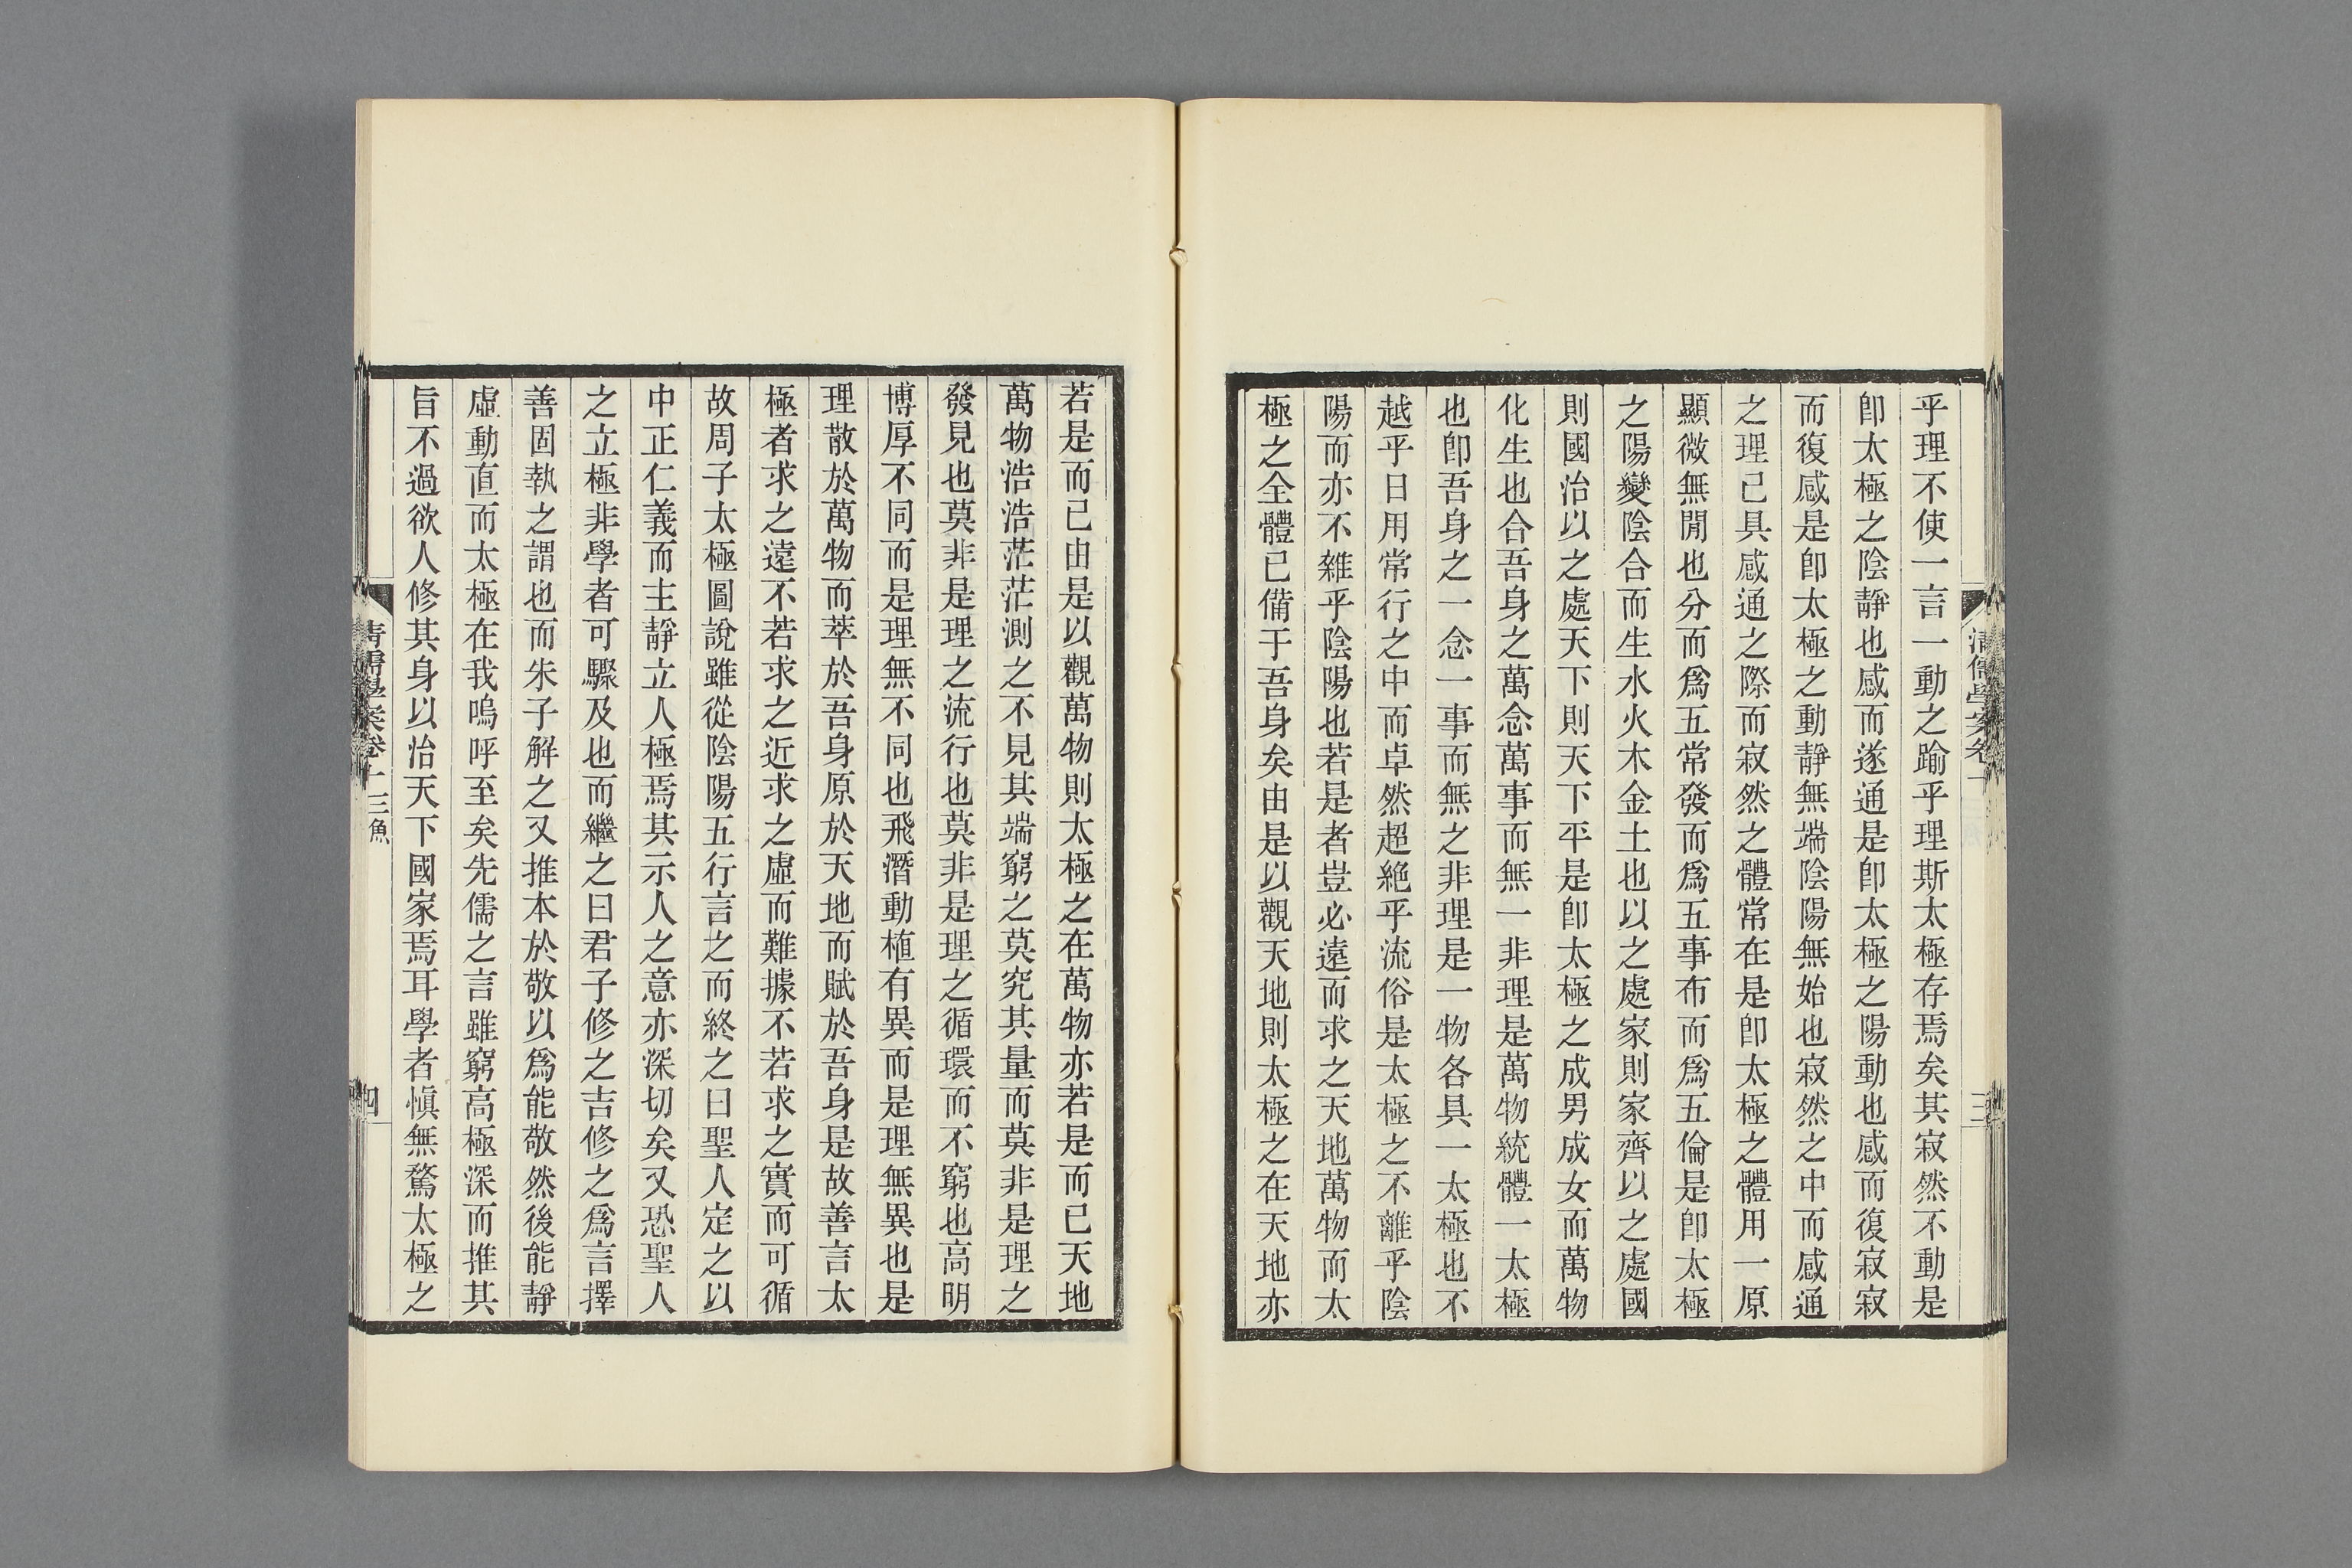 清儒學案卷十
三
乎理不使一言一動之踰乎理斯太極存焉矣其寂然不動是
卽太極之陰靜也感而遂通是卽太極之陽動也感而復寂寂
而復感是卽太極之動靜無端陰陽無始也寂然之中而感通
之理已具感通之際而寂然之體常在是卽太極之體用一原
顯微無閒也分而爲五常發而爲五事布而爲五倫是卽太極
之陽變陰合而生水火木金土也以之處家則家齊以之處國
則國治以之處天下則天下平是卽太極之成男成女而萬物
化生也合吾身之萬念萬事而無一非理是萬物統體一太極
也卽吾身之一念一事而無之非理是一物各具一太極也不
越乎日用常行之中而卓然超絕乎流俗是太極之不離乎陰
陽而亦不雜乎陰陽也若是者豈必遠而求之天地萬物而太
極之全體已備于吾身矣由是以觀天地則太極之在天地亦
若是而已由是以觀萬物則太極之在萬物亦若是而已天地
萬物浩浩茫茫測之不見其端窮之莫究其量而莫非是理之
發見也莫非是理之流行也莫非是理之循環而不窮也高明
博厚不同而是理無不同也飛潛動植有異而是理無異也是
理散於萬物而萃於吾身原於天地而賦於吾身是故善言太
極者求之遠不若求之近求之虛而難據不若求之實而可循
故周子太極圖說雖從陰陽五行言之而終之曰聖人定之以
中正仁義而主靜立人極焉其示人之意亦深切矣又恐聖人
之立極非學者可驟及也而繼之曰君子修之吉修之爲言擇
善固執之謂也而朱子解之又推本於敬以爲能敬然後能靜
虛動直而太極在我嗚呼至矣先儒之言雖窮高極深而推其
旨不過欲人修其身以治天下國家焉耳學者愼無騖太極之
清儒學案卷十 三魚
四